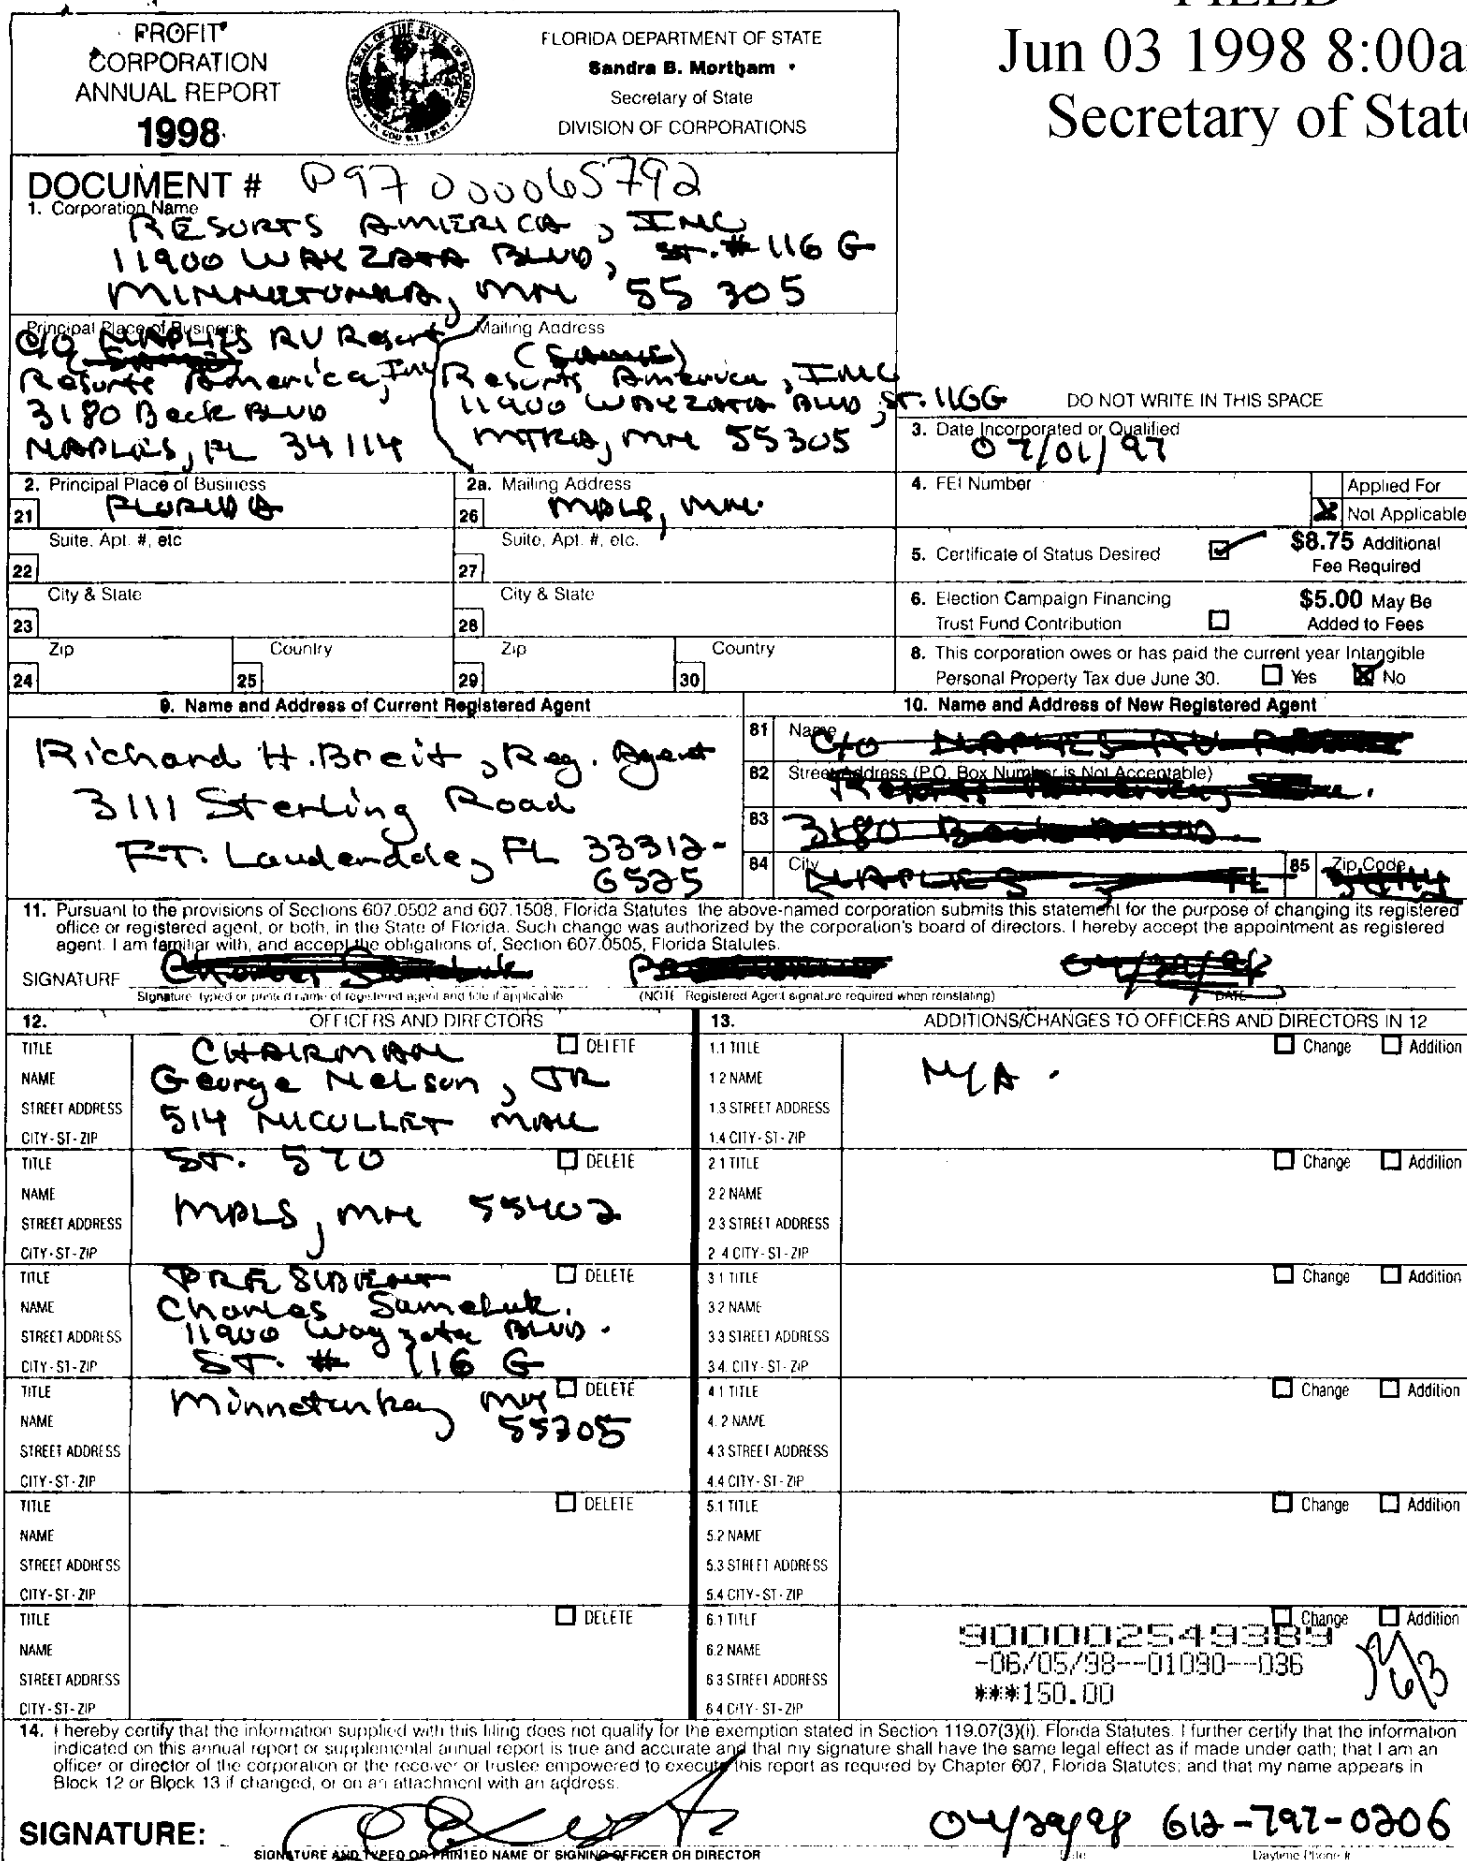 FILED
Jun 03 1998 8:00a
Secretary of State
PROFIT
CORPORATION
ANNUAL REPORT
1998
FLORIDA DEPARTMENT OF STATE
Sandra B. Mortham
Secretary of State
DIVISION OF CORPORATIONS
DOCUMENT # P97000065792
1. Corporation Name
RESORTS AMERICA, INC
11900 WAYZATA BLVD, ST. # 116 G
MINNETONKA, MN 55305
Principal Place of Business
C/O NAPLES RV Resort
Resorts America, Inc
3180 Beck BLVD
NAPLES, FL 34114
Mailing Address
(Same)
Resorts America, INC
11900 WAYZATA BLVD, ST. 116G
MTKA, MN 55305
DO NOT WRITE IN THIS SPACE
3. Date Incorporated or Qualified
07/01/97
2. Principal Place of Business
21 FLORIDA
2a. Mailing Address
26 MPLS, MN.
4. FEI Number
Applied For
Not Applicable
Suite, Apt. #, etc
22
Suite, Apt. #, etc.
27
5. Certificate of Status Desired
$8.75 Additional
Fee Required
City & State
23
City & State
28
6. Election Campaign Financing
Trust Fund Contribution
$5.00 May Be
Added to Fees
Zip
24
Country
25
Zip
29
Country
30
8. This corporation owes or has paid the current year Intangible
Personal Property Tax due June 30. Yes No
9. Name and Address of Current Registered Agent
Richard H. Breit, Reg. Agent
3111 Sterling Road
FT. Lauderdale, FL 33312-
6525
10. Name and Address of New Registered Agent
81 Name
C/O NAPLES RV
82 Street Address (P.O. Box Number is Not Acceptable)
83
3180
84 City
NAPLES FL
85 Zip Code
11. Pursuant to the provisions of Sections 607.0502 and 607.1508, Florida Statutes the above-named corporation submits this statement for the purpose of changing its registered
office or registered agent, or both, in the State of Florida. Such change was authorized by the corporation's board of directors. I hereby accept the appointment as registered
agent. I am familiar with, and accept the obligations of, Section 607.0505, Florida Statutes.
SIGNATURE
Signature typed or printed name of registered agent and title if applicable
(NOTE Registered Agent signature required when reinstating)
DATE
12. OFFICERS AND DIRECTORS
13. ADDITIONS/CHANGES TO OFFICERS AND DIRECTORS IN 12
TITLE CHAIRMAN DELETE
NAME George Nelson, JR
STREET ADDRESS 514 NICOLLET MALL
CITY-ST-ZIP
1.1 TITLE Change Addition
1.2 NAME N/A.
1.3 STREET ADDRESS
1.4 CITY-ST-ZIP
TITLE ST. 570 DELETE
NAME
STREET ADDRESS MPLS, MN 55402
CITY-ST-ZIP
2.1 TITLE Change Addition
2.2 NAME
2.3 STREET ADDRESS
2.4 CITY-ST-ZIP
TITLE PRESIDENT DELETE
NAME Charles
STREET ADDRESS 11900 Wayzata BLVD.
CITY-ST-ZIP ST. # 116 G
3.1 TITLE Change Addition
3.2 NAME
3.3 STREET ADDRESS
3.4. CITY-ST-ZIP
TITLE Minnetonka, MN DELETE
NAME 55305
STREET ADDRESS
CITY-ST-ZIP
4.1 TITLE Change Addition
4.2 NAME
4.3 STREET ADDRESS
4.4 CITY-ST-ZIP
TITLE DELETE
NAME
STREET ADDRESS
CITY-ST-ZIP
5.1 TITLE Change Addition
5.2 NAME
5.3 STREET ADDRESS
5.4 CITY-ST-ZIP
TITLE DELETE
NAME
STREET ADDRESS
CITY-ST-ZIP
6.1 TITLE Change Addition
6.2 NAME
6.3 STREET ADDRESS
6.4 CITY-ST-ZIP
900002549389
-06/05/98--01090--036
***150.00
14. I hereby certify that the information supplied with this filing does not qualify for the exemption stated in Section 119.07(3)(i), Florida Statutes. I further certify that the information
indicated on this annual report or supplemental annual report is true and accurate and that my signature shall have the same legal effect as if made under oath; that I am an
officer or director of the corporation or the receiver or trustee empowered to execute this report as required by Chapter 607, Florida Statutes; and that my name appears in
Block 12 or Block 13 if changed, or on an attachment with an address.
SIGNATURE: 04/29/98 612-797-0206
SIGNATURE AND TYPED OR PRINTED NAME OF SIGNING OFFICER OR DIRECTOR
Date
Daytime Phone #